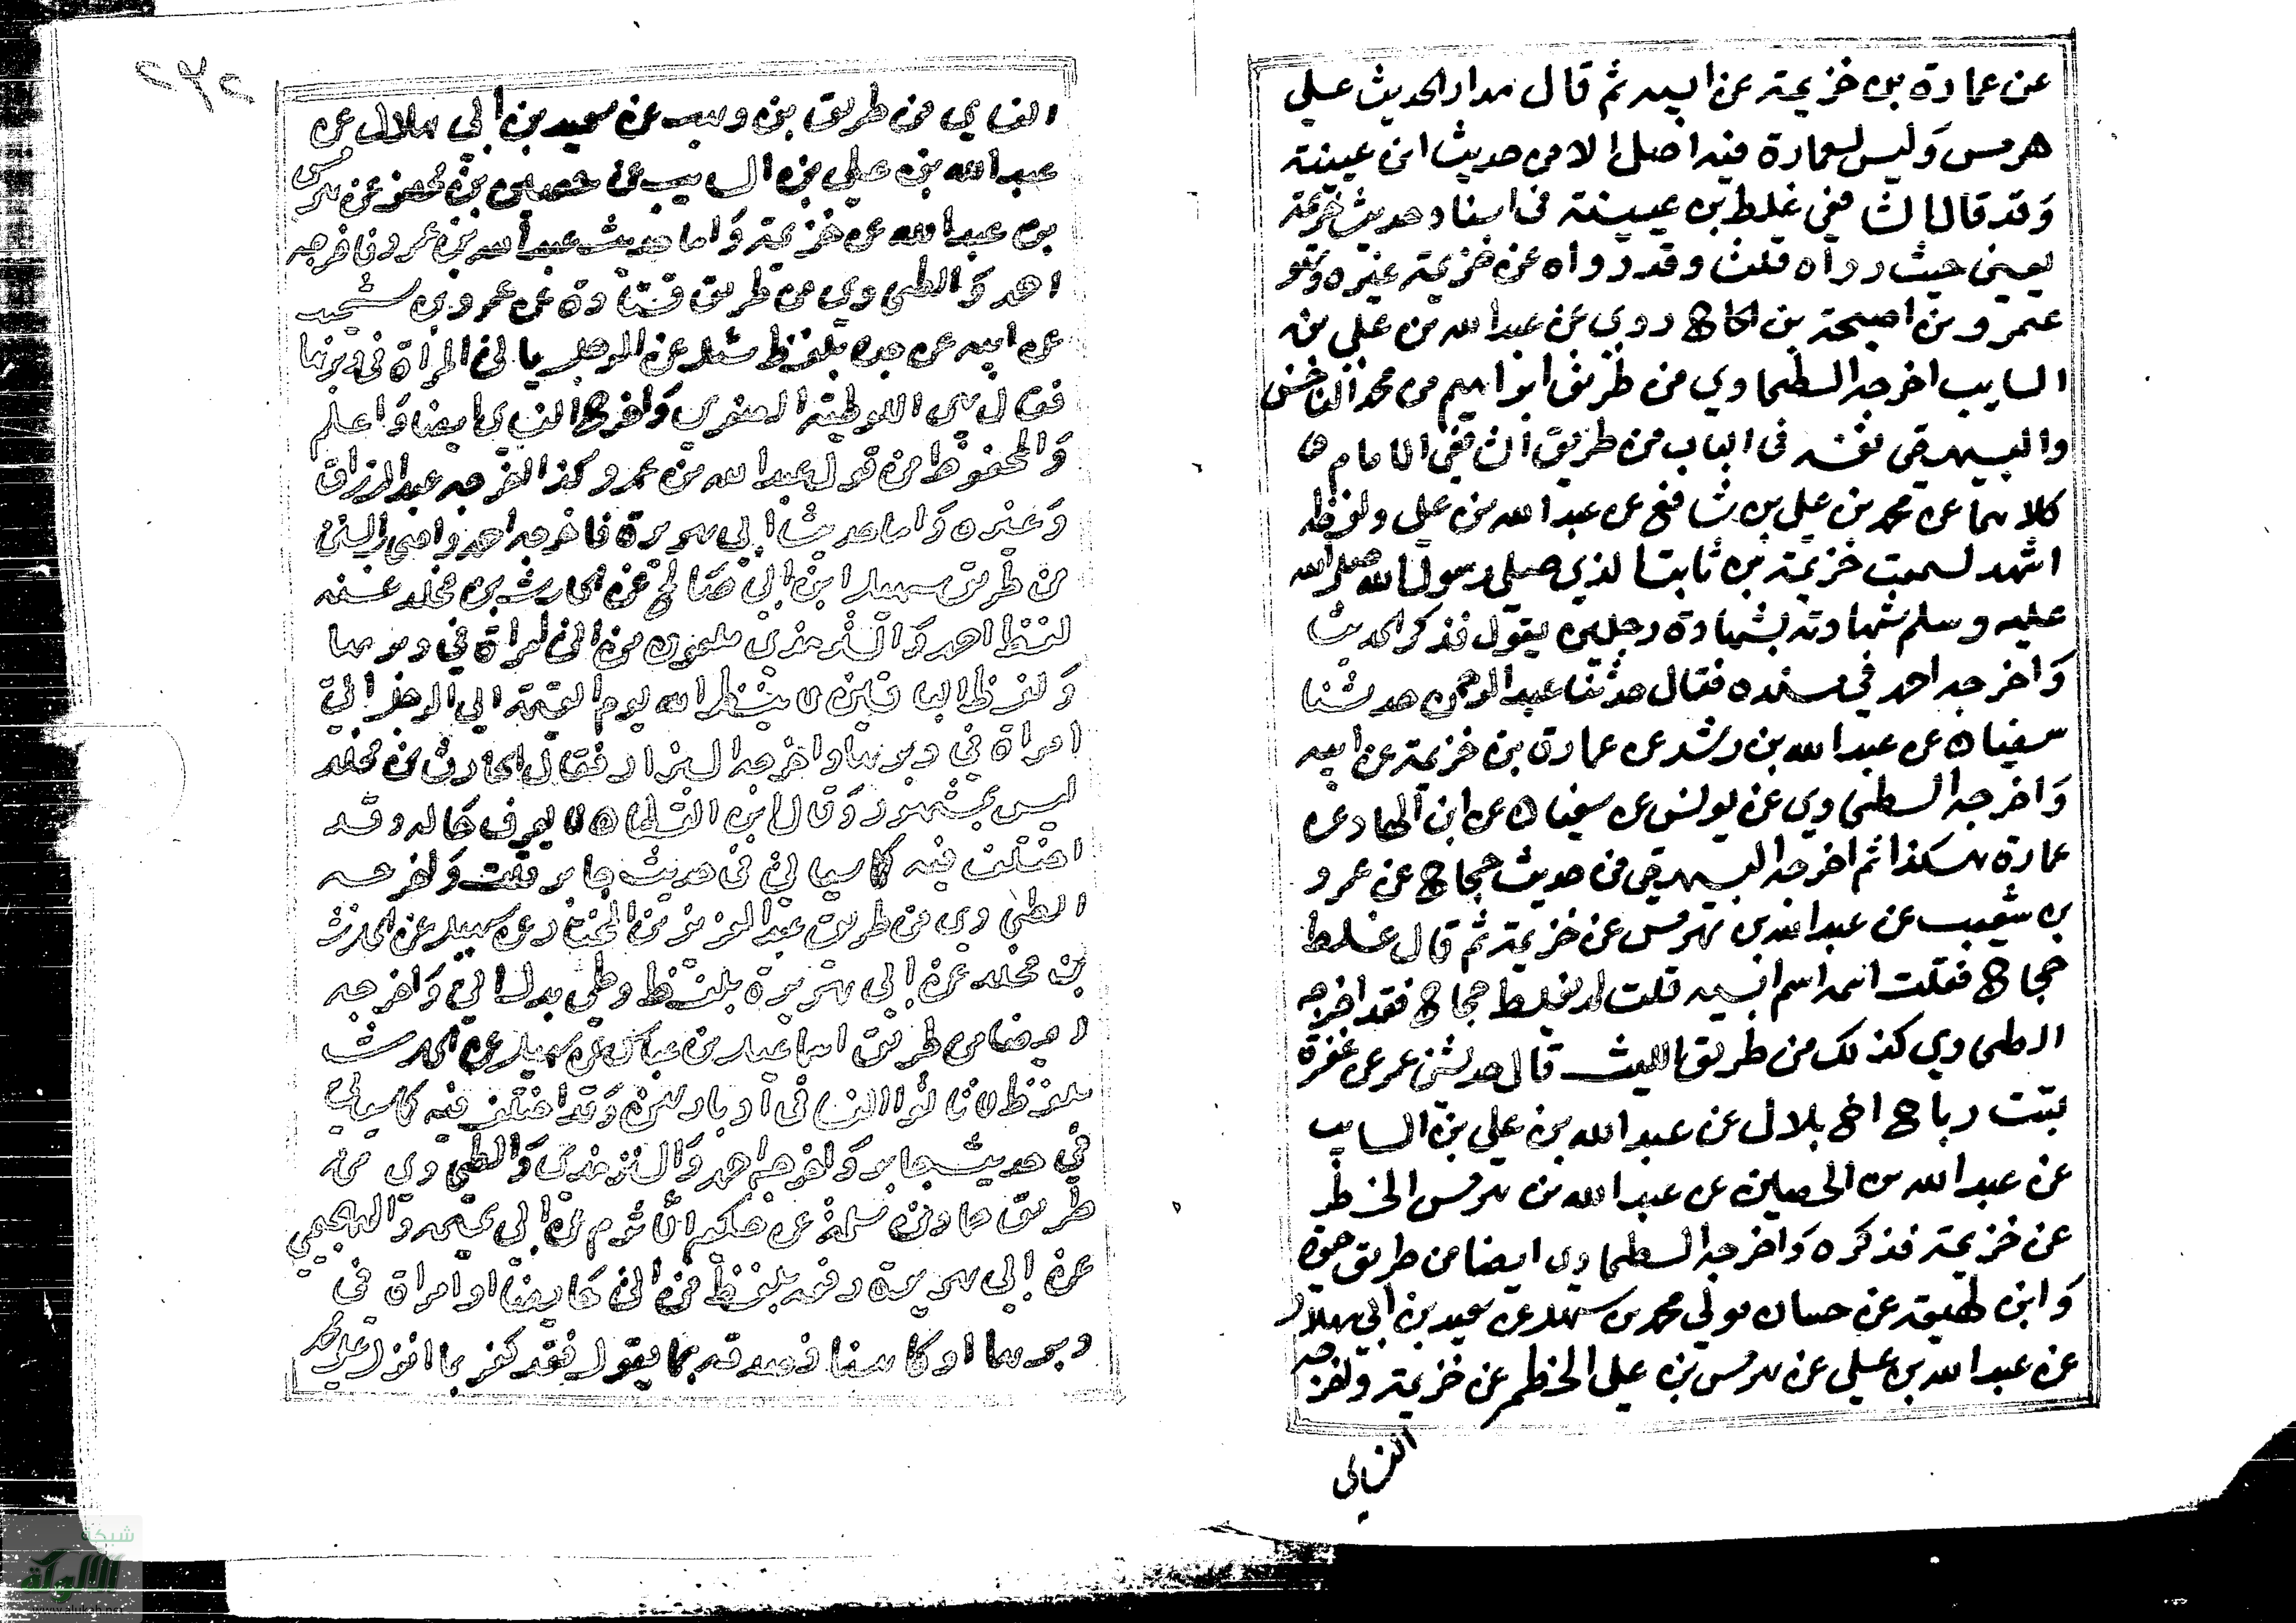 عن عمارة بن خزيمة عن ابيه ثم قال مدار الحديث على
هرمس وليس لعمارة فيه اصل الا من حديث ابن عيينة
وقد قال الشافعي غلط بن عيينة في اسناد حديث خزيمة
يعني حيث رواه قلت وقد رواه عن خزيمة غيره وهو
عمرو بن احيحة بن الجلاح روي عن عبد الله بن علي بن
السايب اخرجه الطحاوي من طريق ابراهيم بن محمد الشافعي
والبيهقي نفسه في الباب من طريق الشافعي الامام
كلاهما عن محمد بن علي بن شافع عن عبد الله بن علي ولفظه
اشهد لسمعت خزيمة بن ثابت الذي جعل رسول الله صلى الله
عليه وسلم شهادته بشهادة رجلين يقول فذكر الحديث
واخرجه احمد في مسنده فقال حدثنا عبد الرحمن حدثنا
سفيان عن عبد الله بن شداد عن عمارة بن خزيمة عن ابيه
واخرجه الطحاوي عن يونس عن سفيان عن ابن الهاد عن
عمارة هكذا ثم اخرجه البيهقي من حديث حجاج عن عمرو
بن شعيب عن عبد الله بن هرمس عن خزيمة ثم قال غلط
حجاج فقلت اسمه اسم ابيه قلت لم يغلط حجاج فقد اخرجه
الطحاوي كذلك من طريق الليث قال حدثني عمر عن غفرة
بنت رباح اخي بلال عن عبد الله بن علي بن السايب
عن عبد الله بن الحصين عن عبد الله بن هرمس الخطمي
عن خزيمة فذكره واخرجه الطحاوي ايضا من طريق حيوة
وابن لهيعة عن حسان مولي محمد بن سهل عن سعيد بن ابي هلال
عن عبد الله بن علي عن هرمس بن علي الخطمي عن خزيمة واخرجه
النسائي
النسائي من طريق بن وهب عن سعيد بن ابي هلال عن
عبد الله بن علي بن السايب عن حصين بن محصن عن هرمس
بن عبد الله عن خزيمة واما حديث عبد الله بن عمرو فاخرجه
احمد والطحاوي من طريق قتادة عن عمرو بن شعيب
عن ابيه عن جده بلفظ سئل عن الرجل ياتي المرأة في دبرها
فقال هي اللوطية الصغرى واخرجه النسائي ايضا واعله
والمحفوظ من قول عبد الله بن عمرو كذا اخرجه عبد الرزاق
وغيره واما حديث ابي هريرة فاخرجه احمد واصحاب السنن
من طريق سهيل ابن ابي صالح عن الحارث بن مخلد عنه
لفظ احمد والترمذي ملعون من اتى امراة في دبرها
ولفظ الباقين لا ينظر الله يوم القيمة الي الرجل اتى
امراة في دبرها واخرجه البزار فقال الحارث بن مخلد
ليس بمشهور وقال ابن القطان لا يعرف حاله وقد
اختلف فيه كما سياتي في حديث جابر قلت واخرجه
الطحاوي من طريق عبد العزيز بن المختار عن سهيل عن الحارث
بن مخلد عن ابي هريرة بلفظ وطي بدل اتى واخرجه
ايضا من طريق اسماعيل بن عياش عن سهيل عن الحارث
بلفظ لا تاتوا النساء في ادبارهن وقد اختلف فيه كما سياتي
في حديث جابر واخرجه احمد والترمذي والطحاوي من
طريق حماد بن سلمة عن حكيم الاثرم عن ابي تميمة الهجيمي
عن ابي هريرة رفعه بلفظ من اتى حايضا او امراة في
دبرها او كاهنا فصدقه بما يقول فقد كفر بما انزل على محمد
شبكة
الألوكة
www.alukah.net